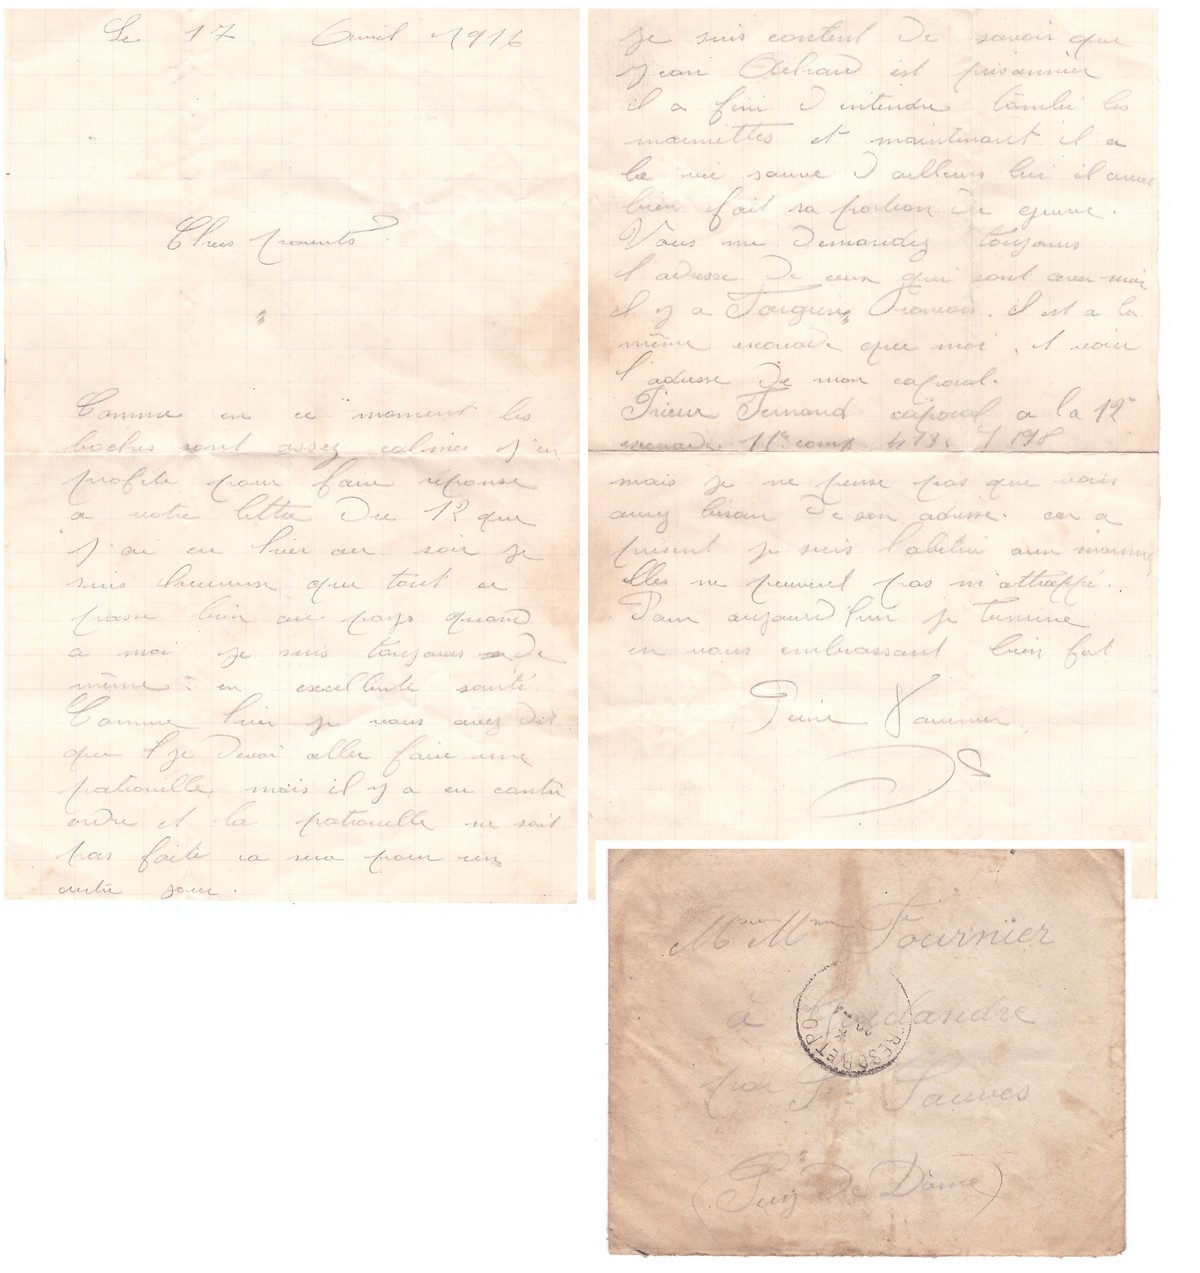 Le 17 Avril 1916
Chers parents
Comme en ce moment les
boches sont assez calmes j'en
profite pour faire réponse
a votre lettre du 12 que
j'ai eu hier au soir je
suis heureux que tout ce
passe bien au pays quand
a moi je suis toujours de
même : en excellente santé.
Comme hier je vous avez dit
que je devai aller faire une
patrouille mais il y a eu contre
ordre et la patrouille ne sait
pas faite ca sera pour un
autre jour.
je suis content de savoir que
Jean est prisonnier
il a fini d entendre tomber les
marmittes et maintenant il a
la vie sauve d ailleurs lui il avait
bien fait sa portion de guerre.
Vous me demandez toujours
l'adresse de ceux qui sont avec moi
il y a François. il est a la
même escouade que moi, et voici
l'adresse de mon caporal.
Prieur Fernand caporal a la 12e
escouade. 11e comp 413. S P 198
mais je ne pense pas que vous
aurez besoin de son adresse. car a
présent je suis habitué aux marmites
elles ne peuvent pas m'attrappé.
Pour aujourd'hui je termine
en vous embrassant bien fort
Fournier
Mr et Mme Fournier
à
par St Sauves
(Puy de Dôme)
TRESOR ET POSTES